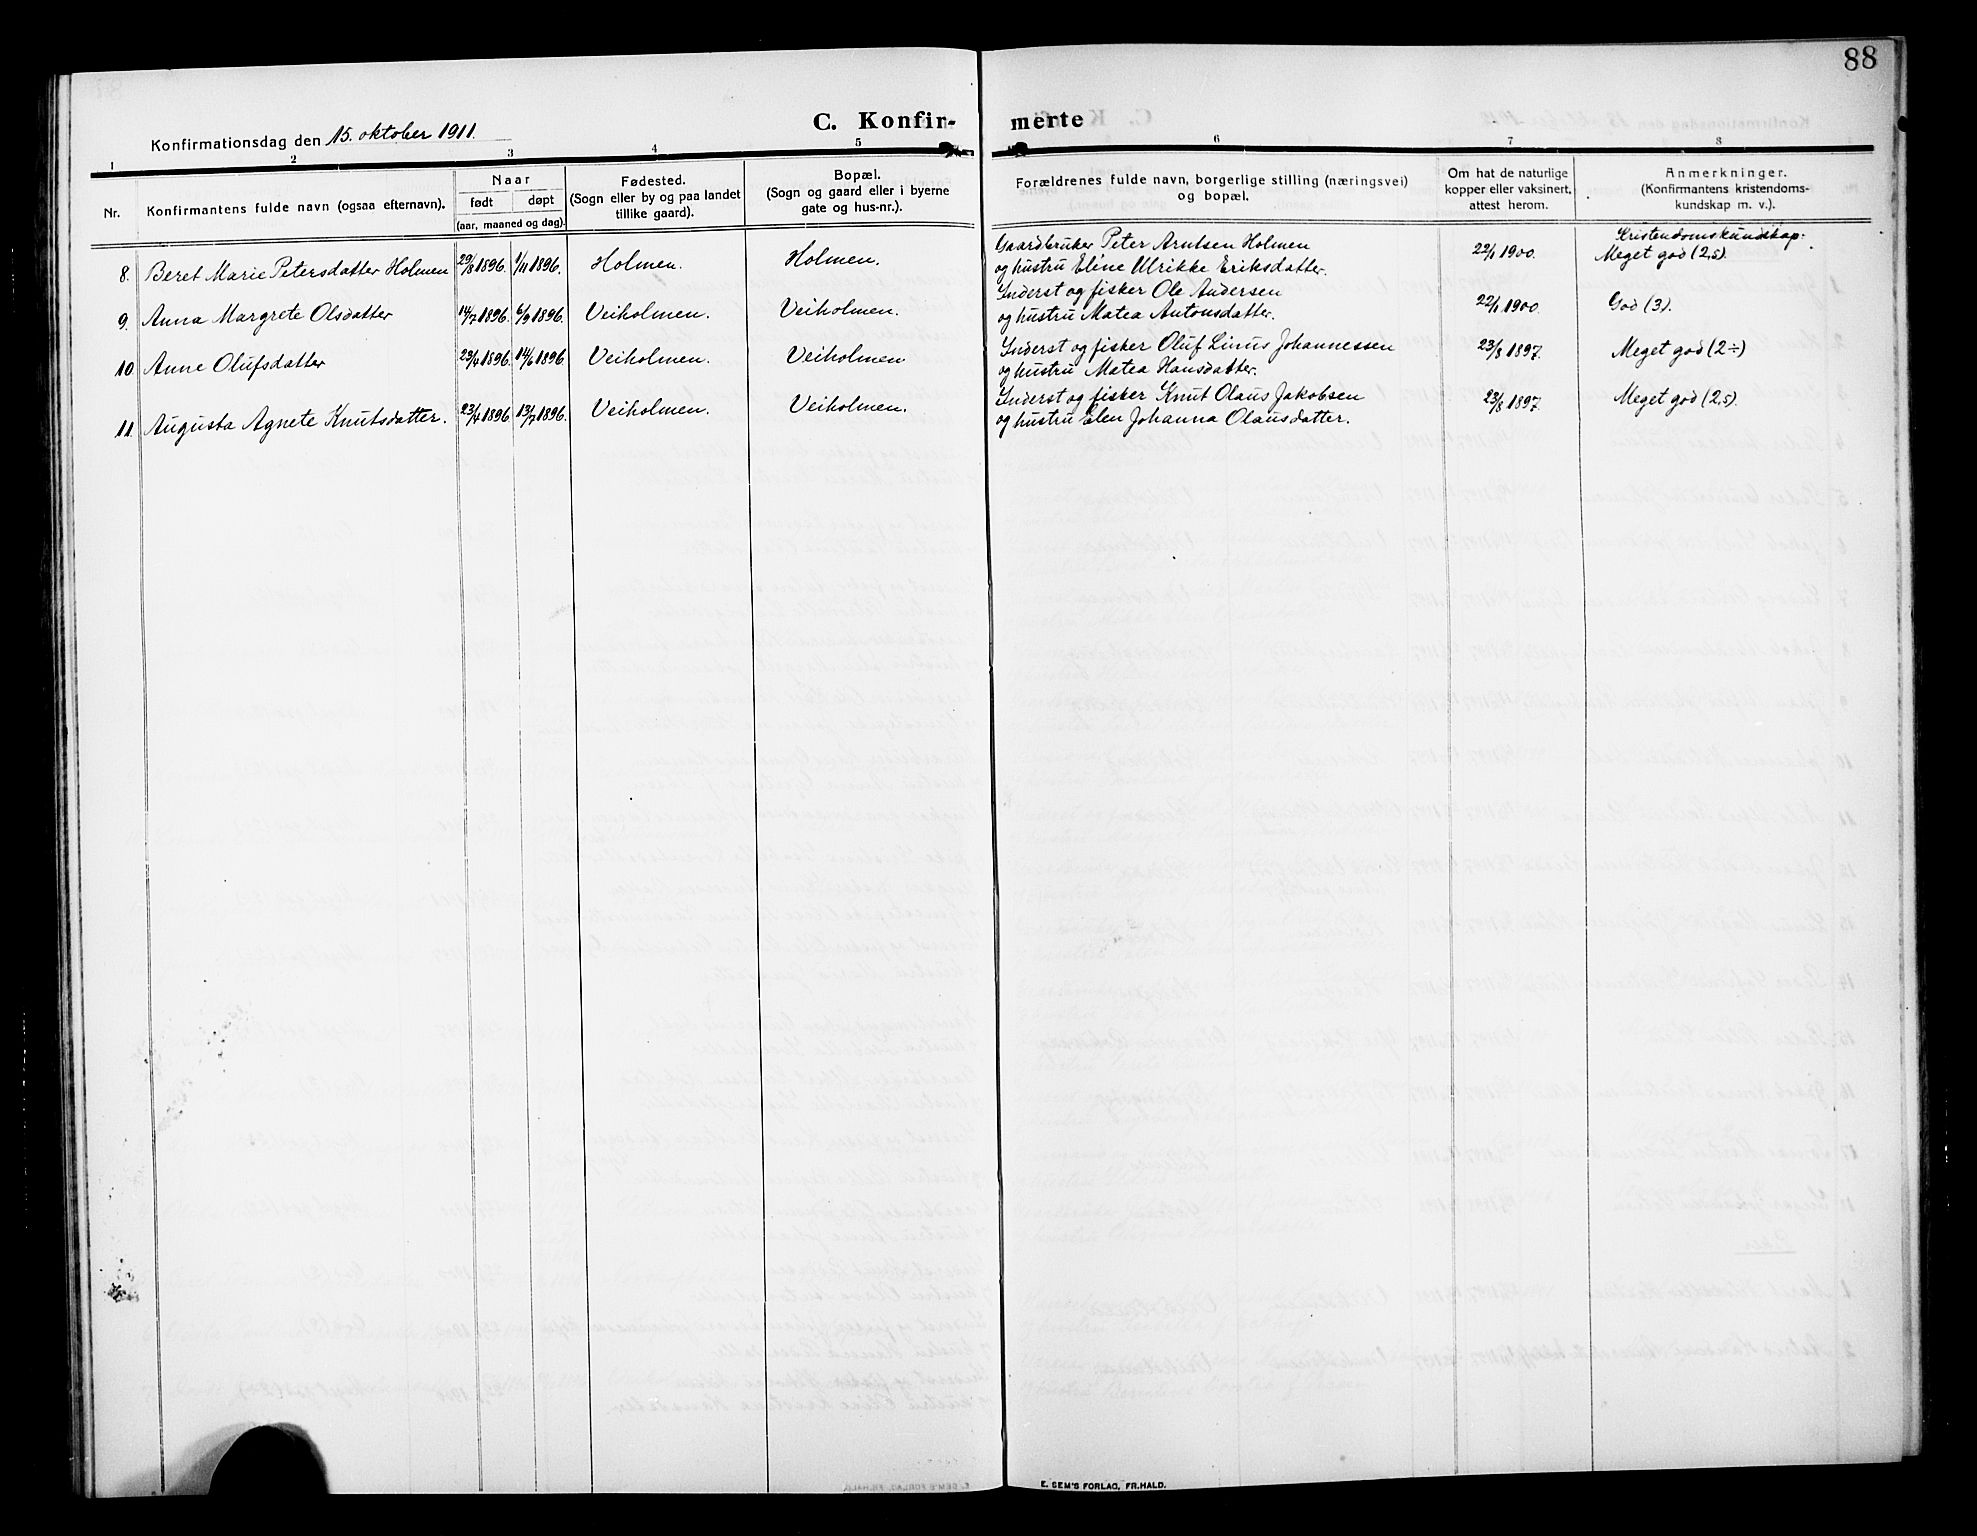 88
Konfirmationsdag den 15. oktober 1911.
C. Konfir- merte
1 2 3 4 5 6 7 8
Nr.
Konfirmantens fulde navn (ogsaa efternavn).
Naar
født døpt
(aar, maaned og dag).
Fødested.
(Sogn eller by og paa landet
tillike gaard).
Bopæl.
(Sogn og gaard eller i byerne
gate og hus-nr.).
Forældrenes fulde navn, borgerlige stilling (næringsvei)
og bopæl.
Om hat de naturlige
kopper eller vaksinert,
attest herom.
Anmerkninger.
(Konfirmantens kristendoms-
kundskap m. v.).
8. Beret Marie Petersdatter Holmen 29/8 1896. 1/11 1896. Holmen. Holmen.
Gaardbruker Peter Arntsen Holmen
og hustru Eline Ulrikke Eriksdatter.
22/1 1900.
Kristendomskundskap:
Meget god (2,5).
9. Anna Margrete Olsdatter 14/7 1896. 6/9 1896. Veiholmen. Veiholmen.
Inderst og fisker Ole Andersen
og hustru Matea Antonsdatter.
22/1 1900.
God (3).
10. Anne Olufsdatter 1896. 14/6 1896. Veiholmen. Veiholmen.
Inderst og fisker Oluf Linus Johannessen
og hustru Matea Hansdatter.
23/8 1897.
Meget god (2÷)
11. Augusta Agnete Knutsdatter. 23/4 1896. 13/7 1896. Veiholmen. Veiholmen.
Inderst og fisker Knut Olaus Jakobsen
og hustru Elen Johanna Olausdatter.
23/8 1897.
Meget god (2,5).
E. SEM'S FORLAG, FR.HALD.